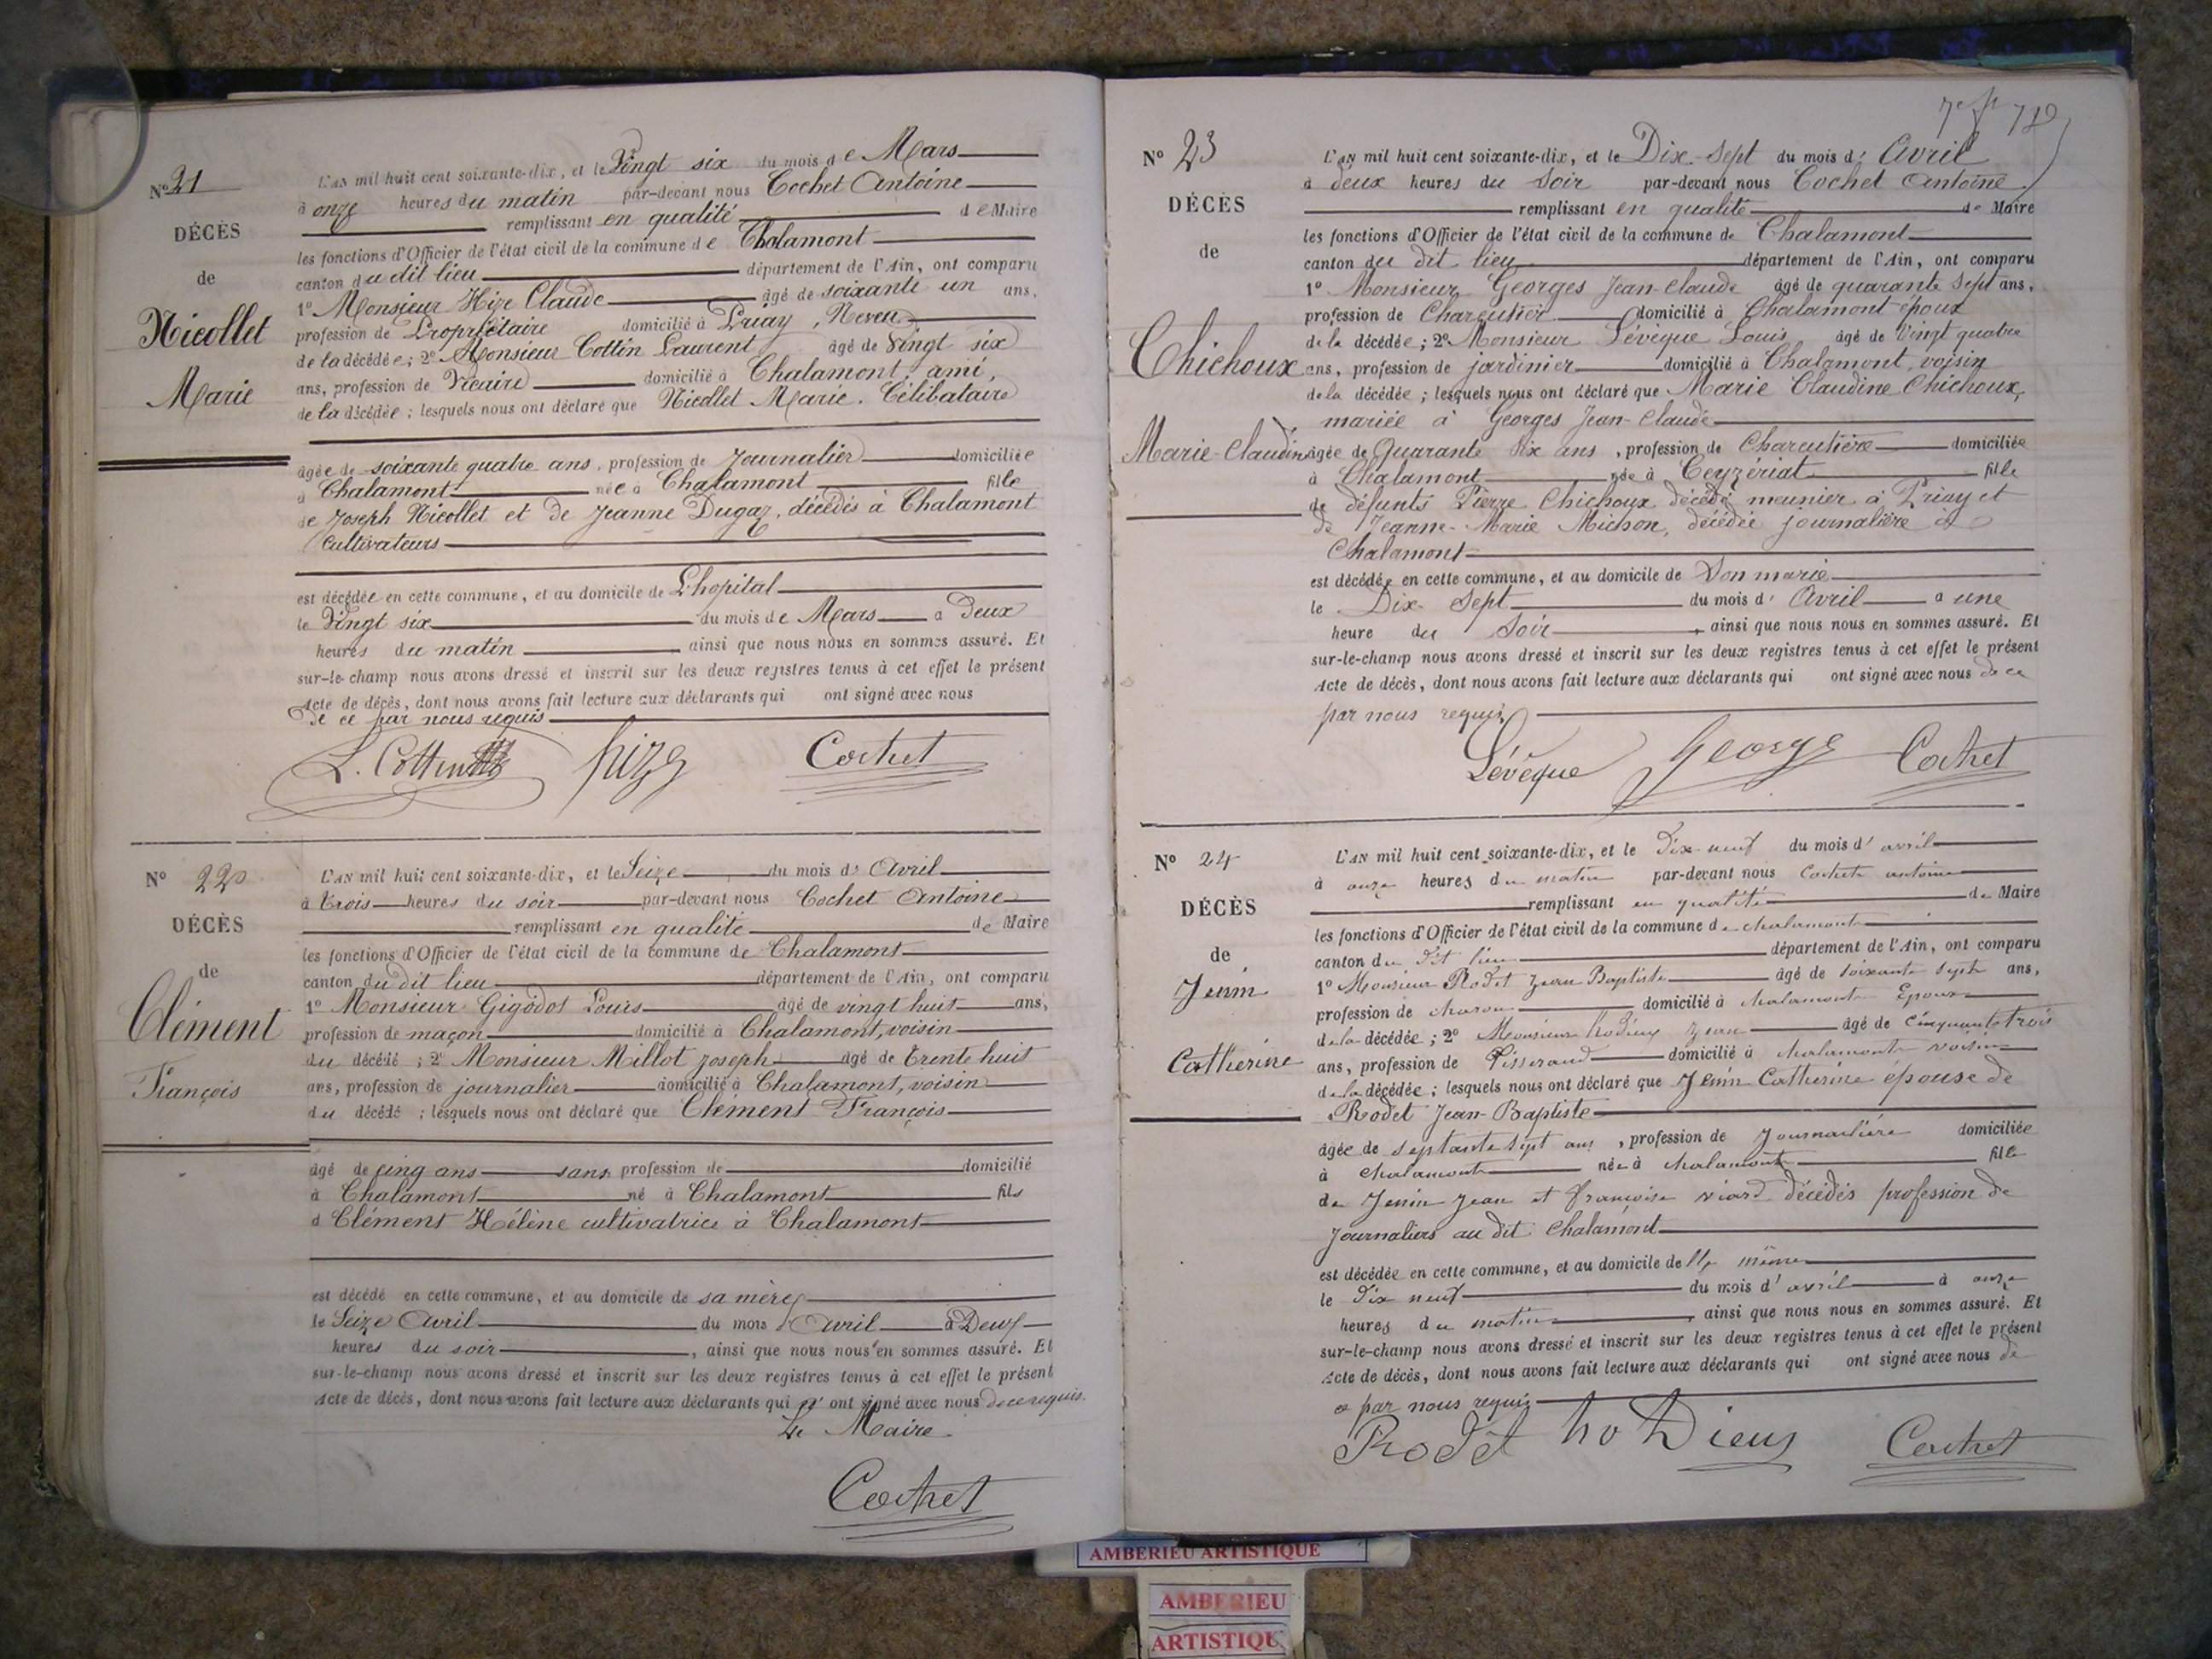 N° 21
DÉCÈS
de
Nicollet
Marie
L'AN mil huit cent soixante-dix, et le Vingt six du mois de Mars
à onze heures du matin par-devant nous Cochet Antoine
remplissant en qualité de Maire
les fonctions d'Officier de l'état civil de la commune de Chalamont
canton du dit lieu département de l'Ain, ont comparu
1° Monsieur Hize Claude âgé de soixante un ans,
profession de Propriétaire domicilié à Priay, Neveu
de la décédée; 2° Monsieur Cottin Laurent âgé de Vingt six
ans, profession de Vicaire domicilié à Chalamont, ami,
de la décédée; lesquels nous ont déclaré que Nicollet Marie. Célibataire
âgée de soixante quatre ans, profession de Journalier domiciliée
à Chalamont née à Chalamont fille
de Joseph Nicollet et de Jeanne Dugaz, décédés à Chalamont
Cultivateurs
est décédée en cette commune, et au domicile de L'hopital
le Vingt six du mois de Mars à Deux
heures du matin ainsi que nous nous en sommes assuré. Et
sur-le-champ nous avons dressé et inscrit sur les deux registres tenus à cet effet le présent
acte de décès, dont nous avons fait lecture aux déclarants qui ont signé avec nous
de ce par nous requis
L. Cottin hize Cochet
N° 22
DÉCÈS
de
Clément
François
L'AN mil huit cent soixante-dix, et le Seize du mois d'Avril
à trois heures du soir par-devant nous Cochet Antoine
remplissant en qualité de Maire
les fonctions d'Officier de l'état civil de la commune de Chalamont
canton du dit lieu département de l'Ain, ont comparu
1° Monsieur Gigodot Louis âgé de vingt huit ans,
profession de maçon domicilié à Chalamont, voisin
du décédé; 2° Monsieur Millot Joseph âgé de trente huit
ans, profession de journalier domicilié à Chalamont, voisin
du décédé; lesquels nous ont déclaré que Clément François
âgé de cinq ans sans profession de domicilié
à Chalamont né à Chalamont fils
d Clément Hélène cultivatrice à Chalamont
est décédé en cette commune, et au domicile de sa mère
le Seize Avril du mois d'Avril à Deux
heures du soir, ainsi que nous nous en sommes assuré. Et
sur-le-champ nous avons dressé et inscrit sur les deux registres tenus à cet effet le présent
acte de décès, dont nous avons fait lecture aux déclarants qui n'ont signé avec nous de ce requis.
Le Maire
Cochet
N° 23
DÉCÈS
de
Chichoux
Marie-Claudine
L'AN mil huit cent soixante-dix, et le Dix-Sept du mois d'Avril
à deux heures du soir par-devant nous Cochet Antoine
remplissant en qualité de Maire
les fonctions d'Officier de l'état civil de la commune de Chalamont
canton du dit lieu département de l'Ain, ont comparu
1° Monsieur Georges Jean-Claude âgé de quarante sept ans,
profession de Charcutier domicilié à Chalamont époux
de la décédée; 2° Monsieur Lévêque Louis âgé de Vingt quatre
ans, profession de jardinier domicilié à Chalamont, voisin
de la décédée; lesquels nous ont déclaré que Marie Claudine Chichoux,
mariée à Georges Jean-Claude
âgée de Quarante six ans, profession de Charcutière domiciliée
à Chalamont née à Ceyzériat fille
de défunts Pierre Chichoux décédé meunier à Priay et
de Jeanne-Marie Michon, décédée journalière à
Chalamont
est décédée en cette commune, et au domicile de Son marie
le Dix-Sept du mois d'Avril à une
heure du Soir, ainsi que nous nous en sommes assuré. Et
sur-le-champ nous avons dressé et inscrit sur les deux registres tenus à cet effet le présent
acte de décès, dont nous avons fait lecture aux déclarants qui ont signé avec nous de ce
par nous requis
Lévêque George Cochet
N° 24
DÉCÈS
de
Jenin
Catherine
L'AN mil huit cent soixante-dix, et le Dix-neuf du mois d'avril
à onze heures du matin par-devant nous Cochet antoine
remplissant en qualité de Maire
les fonctions d'Officier de l'état civil de la commune de chalamont
canton du dit lieu département de l'Ain, ont comparu
1° Monsieur Rodet Jean Baptiste âgé de soixante sept ans,
profession de charon domicilié à chalamont Epoux
de la décédée; 2° Monsieur hodieu Jean âgé de Cinquante trois
ans, profession de Tisserand domicilié à chalamont voisin
de la décédée; lesquels nous ont déclaré que Jenin Catherine epouse de
Rodet Jean-Baptiste
âgée de septante sept ans, profession de Journalière domiciliée
à chalamont née à chalamont fille
de Jenin Jean et françoise viard décédés profession de
Journaliers au dit Chalamont
est décédée en cette commune, et au domicile de même
le Dix neuf du mois d'avril à onze
heures du matin, ainsi que nous nous en sommes assuré. Et
sur-le-champ nous avons dressé et inscrit sur les deux registres tenus à cet effet le présent
acte de décès, dont nous avons fait lecture aux déclarants qui ont signé avec nous de
ce par nous requis
Rodet hoDieu Cochet
AMBERIEU ARTISTIQUE
AMBERIEU
ARTISTIQU